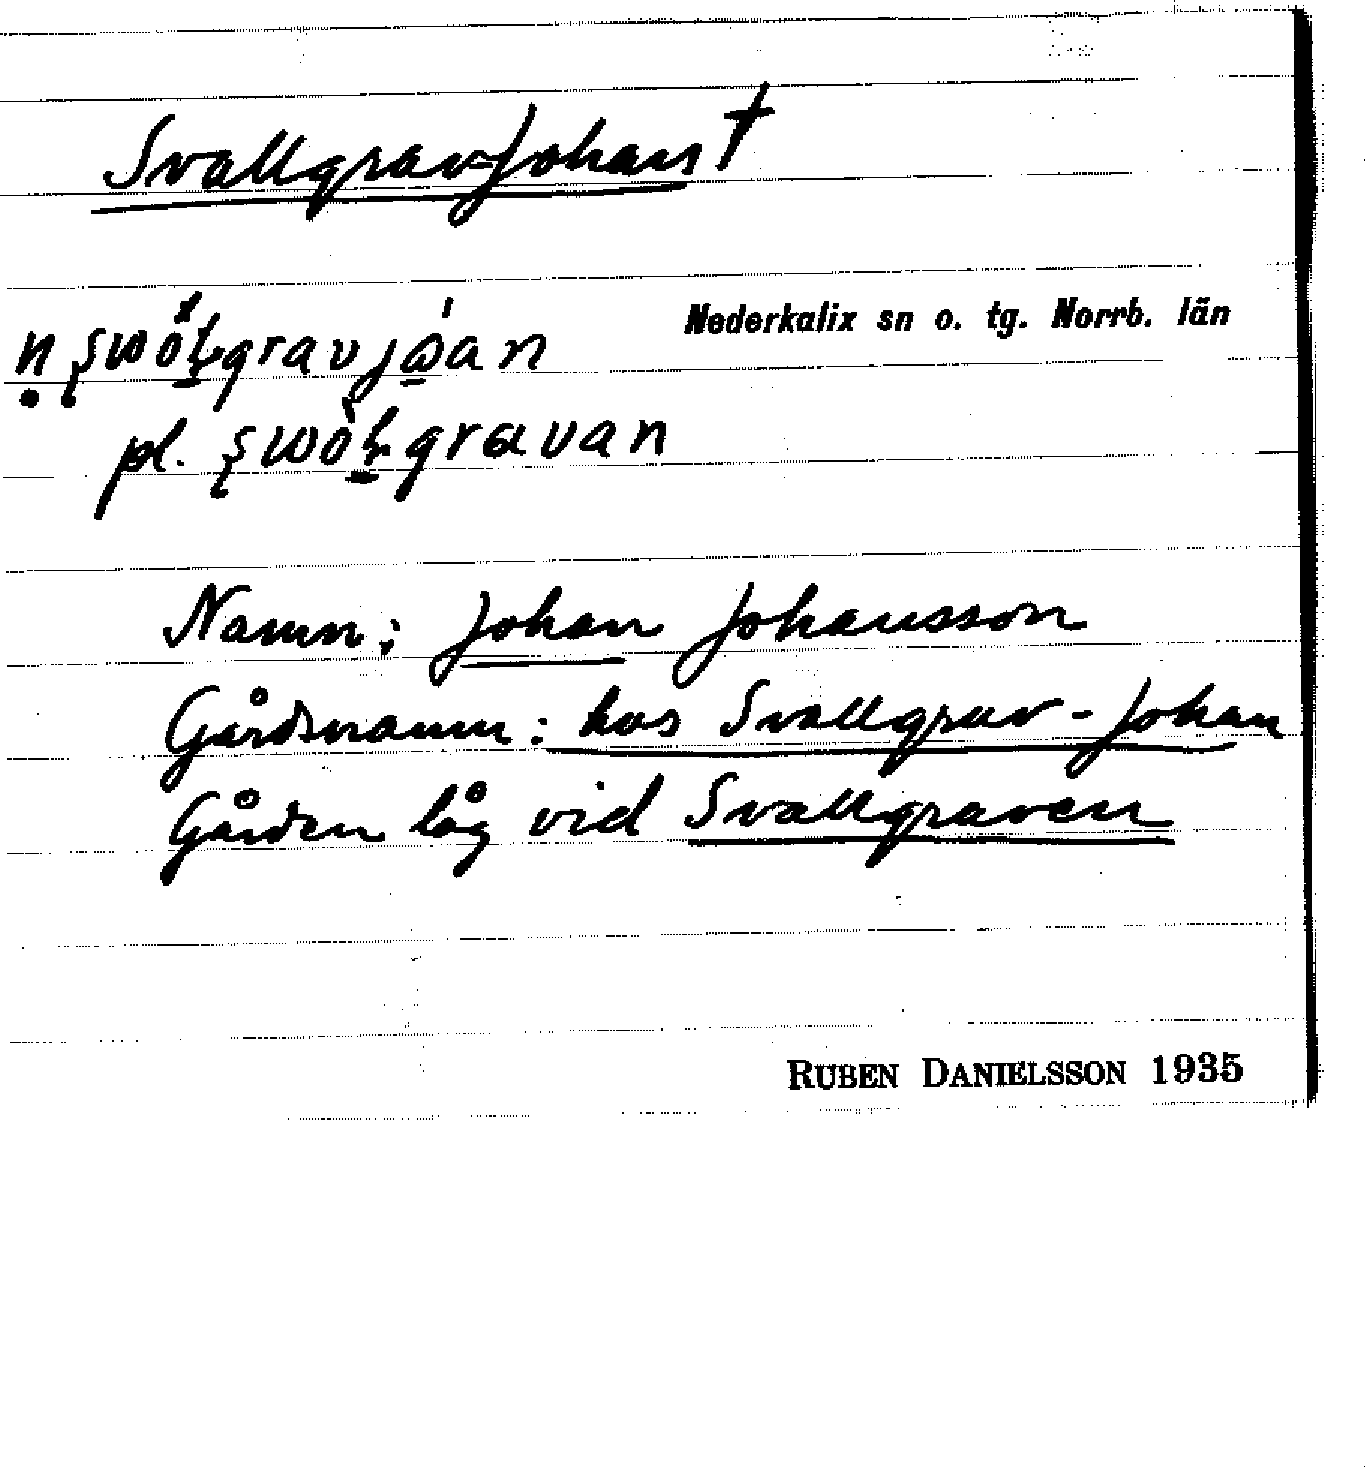 Svallgrav-Johans †
Nederkalix sn o. tg. Norrb. län
pl.
Namn: Johan Johansson
Gårdsnamn: hos Svallgrav-Johan
Gården låg vid Svallgraven
RUBEN DANIELSSON 1935